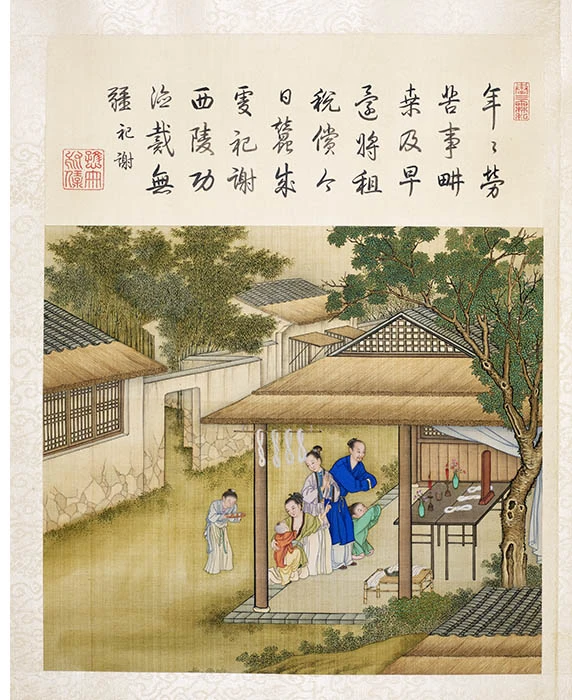 年〻勞
苦事畊
桑及早
還將租
稅償今
日蠶成
虔祀謝
西陵功
德戴無
疆
祀謝